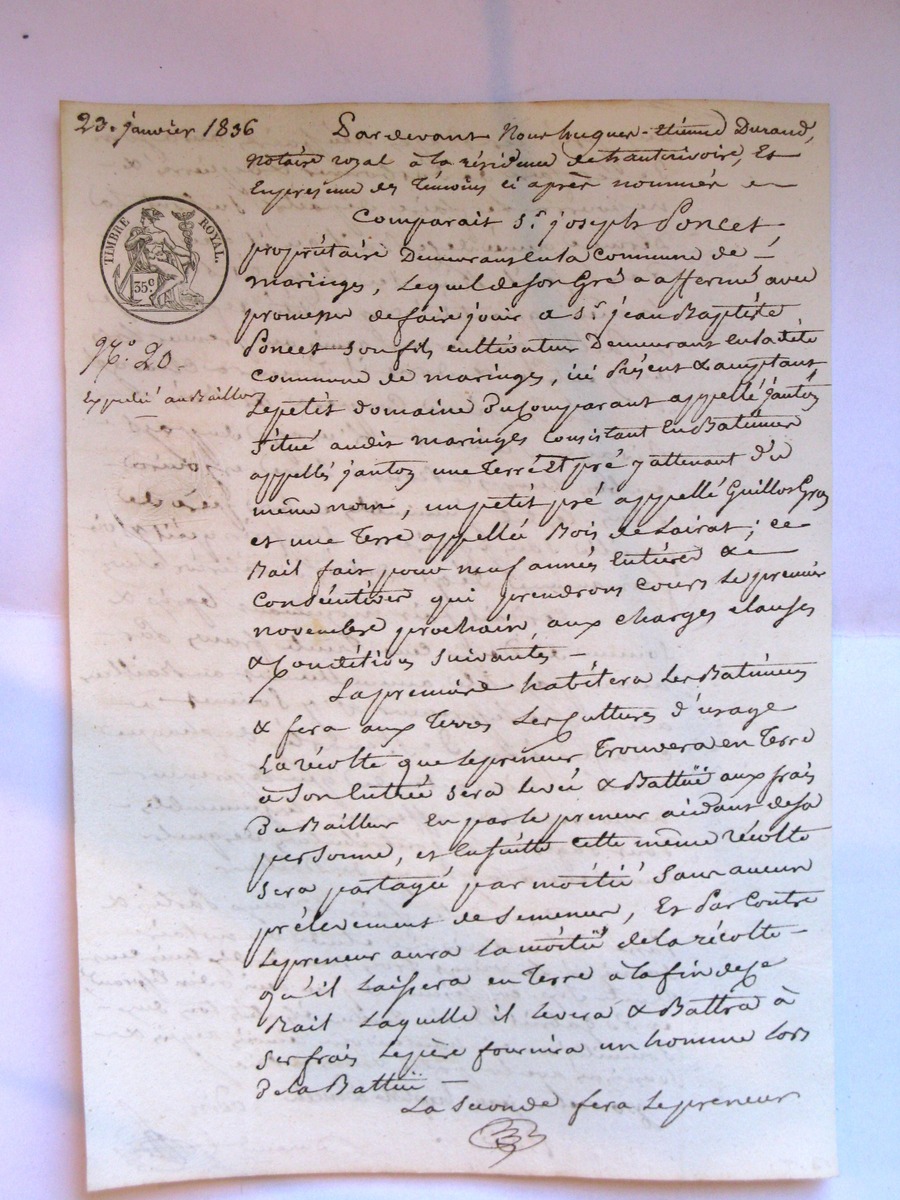 23. janvier 1836
Pardevant Nous hugues-Etienne Durand,
Notaire royal à la résidence de hauterivoire, Et
En presence des Témoins ci après nommés
Comparait Sr. joseph Poncet
propriétaire Demeurant En la commune de
maringes, Lequel de son Gré a affermé avec
promesse de faire jouir a Sr. jean Baptiste
Poncet son fils cultivateur Demeurant En la dite
Commune de maringes, ici Présent & acceptant
Le petit domaine du Comparant appellé jantoz
Situé audit maringes Consistant En Batimens
appellés jantoz une Terre Et pré y attenant du
même nom, un petit pré appellé Guillot Gras
et une Terre appellée Bois de Lairat; ce
Bail fait pour neuf années Entières &
Consécutives qui prendront cours Le premier
novembre prochain, aux charges clauses
& Conditions Suivantes
La première habitera Les Batimens
& fera aux Terres Les Cultures d'usage
La récolte que Le preneur Trouvera en Terre
à Son Entrée sera Levée & Battuë aux frais
Du Bailleur En par le preneur aidant de sa
personne, et Ensuitte Cette même récolte
Sera partagée par moitié Sans aucun
prélevement de Semences, Et Par Contre
Le preneur aura La moitié de la récolte
qu'il Laissera en Terre à la fin de ce
Bail Laquelle il Levera & Battra à
Ses frais Le père fournira un homme Lors
De la Battuë
La Seconde fera Le preneur
TIMBRE ROYAL.
35c.
No. 20.
Expedié au Bailleur